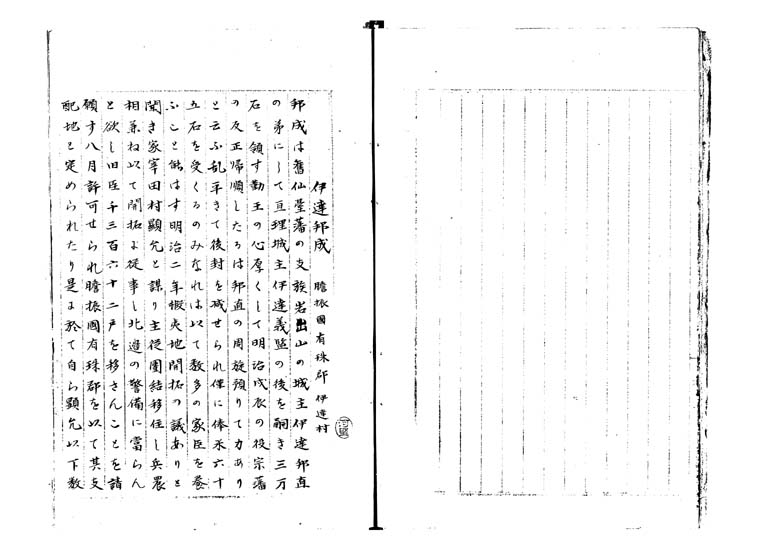 伊達邦成　膽振國有珠郡伊達村
邦成は舊仙臺藩の支族岩出山の城主伊達邦直
の弟にして亘理城主伊達義監の後を嗣き三万
石を領す勤王の心厚くして明治戊辰の役宗藩
の反正歸順したるは邦直の周旋預りて力あり
と云ふ乱平きて後封を減せられ僅に俸米六十
五石を受くるのみなれは以て数多の家臣を養
ふこと能はす明治二年蝦夷地開拓の議ありと
聞き家宰田村顯允と謀り主從團結移住し兵農
相兼ね以て開拓に從事し北道の警備に當らん
と欲し旧臣千三百六十二戸を移さんことを請
願す八月許可せられ膽振國有珠郡を以て其支
配地と定められたり是に於て自ら顯允以下数